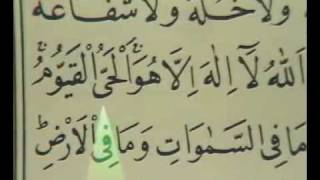 وَلَا خُلَّةٌ وَلَا شَفَاعَةٌ
اَللّٰهُ لَآ اِلٰهَ اِلَّا هُوَۚ اَلْحَيُّ الْقَيُّومُۚ
مَا فِي السَّمٰوَاتِ وَمَا فِي الْاَرْضِۜ